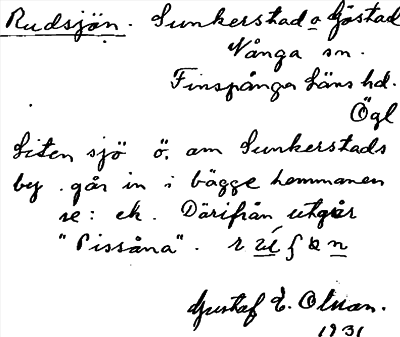 Rudsjön. Sunkerstad o Göstad
Vånga sn.
Finspånga läns hd.
Ögl
Liten sjö ö. om Sunkerstads
by. går in i bägge hemmanen
se: ek. Därifrån utgår
"Pissåna".
Gustaf E. Olsson.
1931